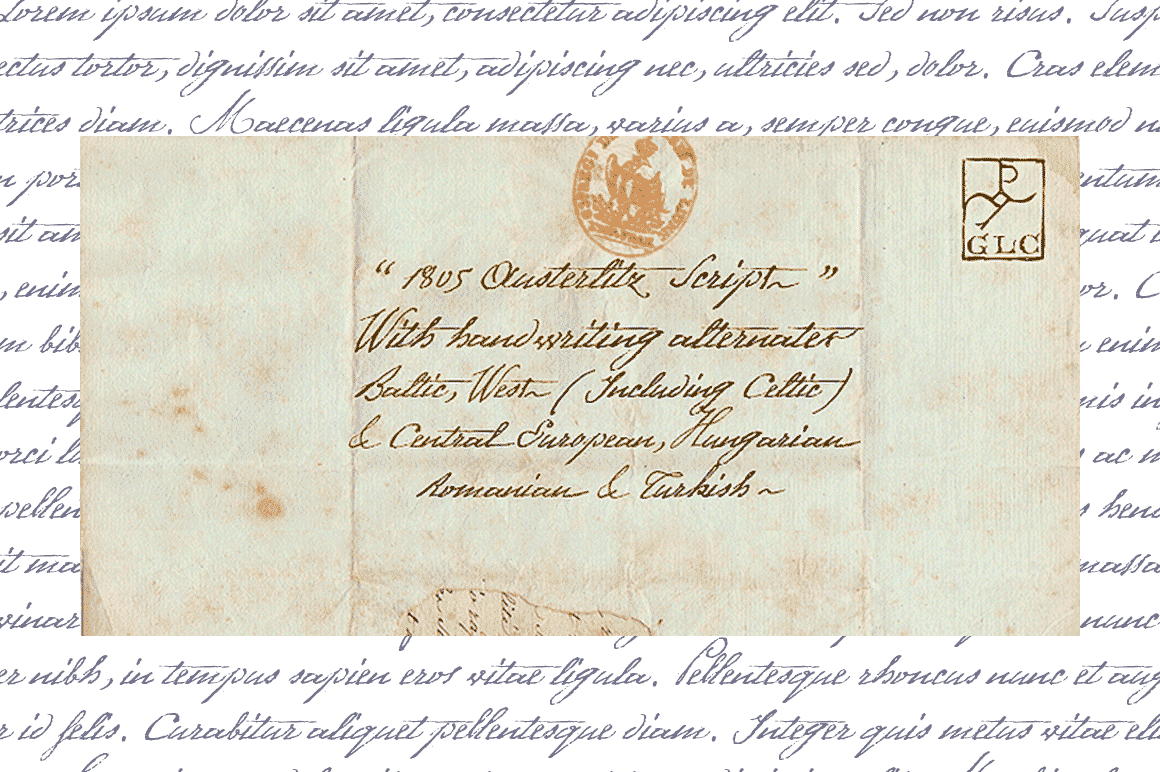 Lorem ipsum dolor sit amet, consectetur adipiscing elit. Sed non risus. Susp
ectus tortor, dignissim sit amet, adipiscing nec, ultricies sed, dolor. Cras elem
trices diam. Maecenas ligula massa, varius a, semper congue, euismod n
GLC
“ 1805 Austerlitz Script ”
With handwriting alternates
Baltic, West (Including Celtic)
& Central European, Hungarian
Romanian & Turkish ~
n por
entum
sit am
quat
, enim
or. C
m bib
enim
lentesq
nis in
orci l
ac m
pellen
s hend
it ma
massa
vinar
nunc
er nibh, in tempus sapien eros vitae ligula. Pellentesque rhoncus nunc et aug
r id felis. Curabitur aliquet pellentesque diam. Integer quis metus vitae eli